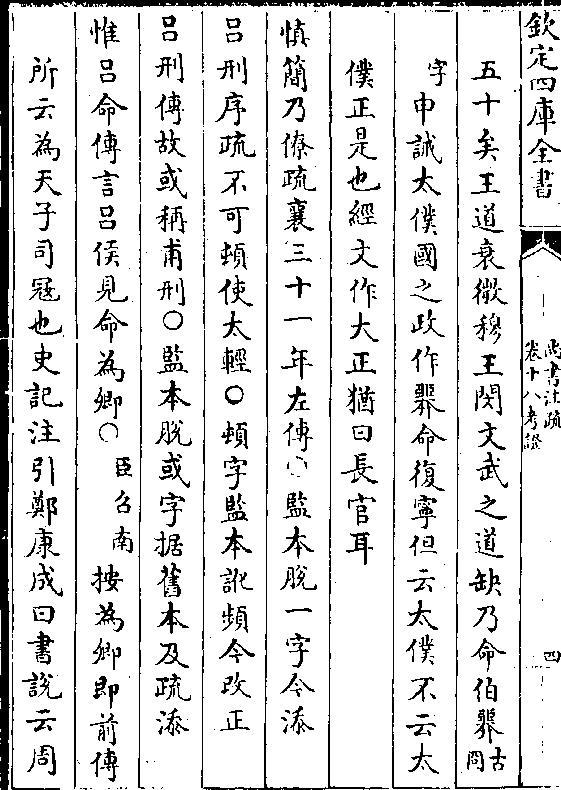 欽定四庫全書
尚書注疏
卷十八考證
四
五十矣王道衰微穆王閔文武之道缺乃命伯臩古冏
字申誡太僕國之政作臩命復寧但云太僕不云太
僕正是也經文作大正猶曰長官耳
慎簡乃僚疏襄三十一年左傳○監本脫一字今添
呂刑序疏不可頓使太輕○頓字監本訛頻今改正
呂刑傳故或稱甫刑○監本脫或字据舊本及疏添
惟呂命傳言呂侯見命為卿○臣召南按為卿即前傳
所云為天子司冦也史記注引鄭康成曰書說云周